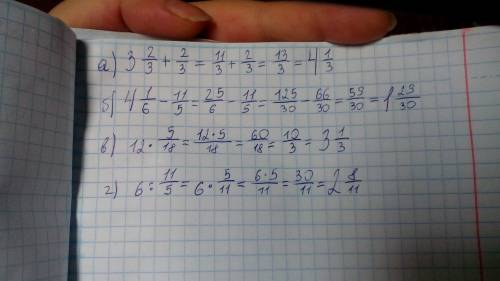 а) 3 2/3 + 2/3 = 11/3 + 2/3 = 13/3 = 4 1/3
б) 4 1/6 - 11/5 = 25/6 - 11/5 = 125/30 - 66/30 = 59/30 = 1 29/30
в) 12 · 5/18 = 12·5/18 = 60/18 = 10/3 = 3 1/3
г) 6 : 11/5 = 6 · 5/11 = 6·5/11 = 30/11 = 2 8/11